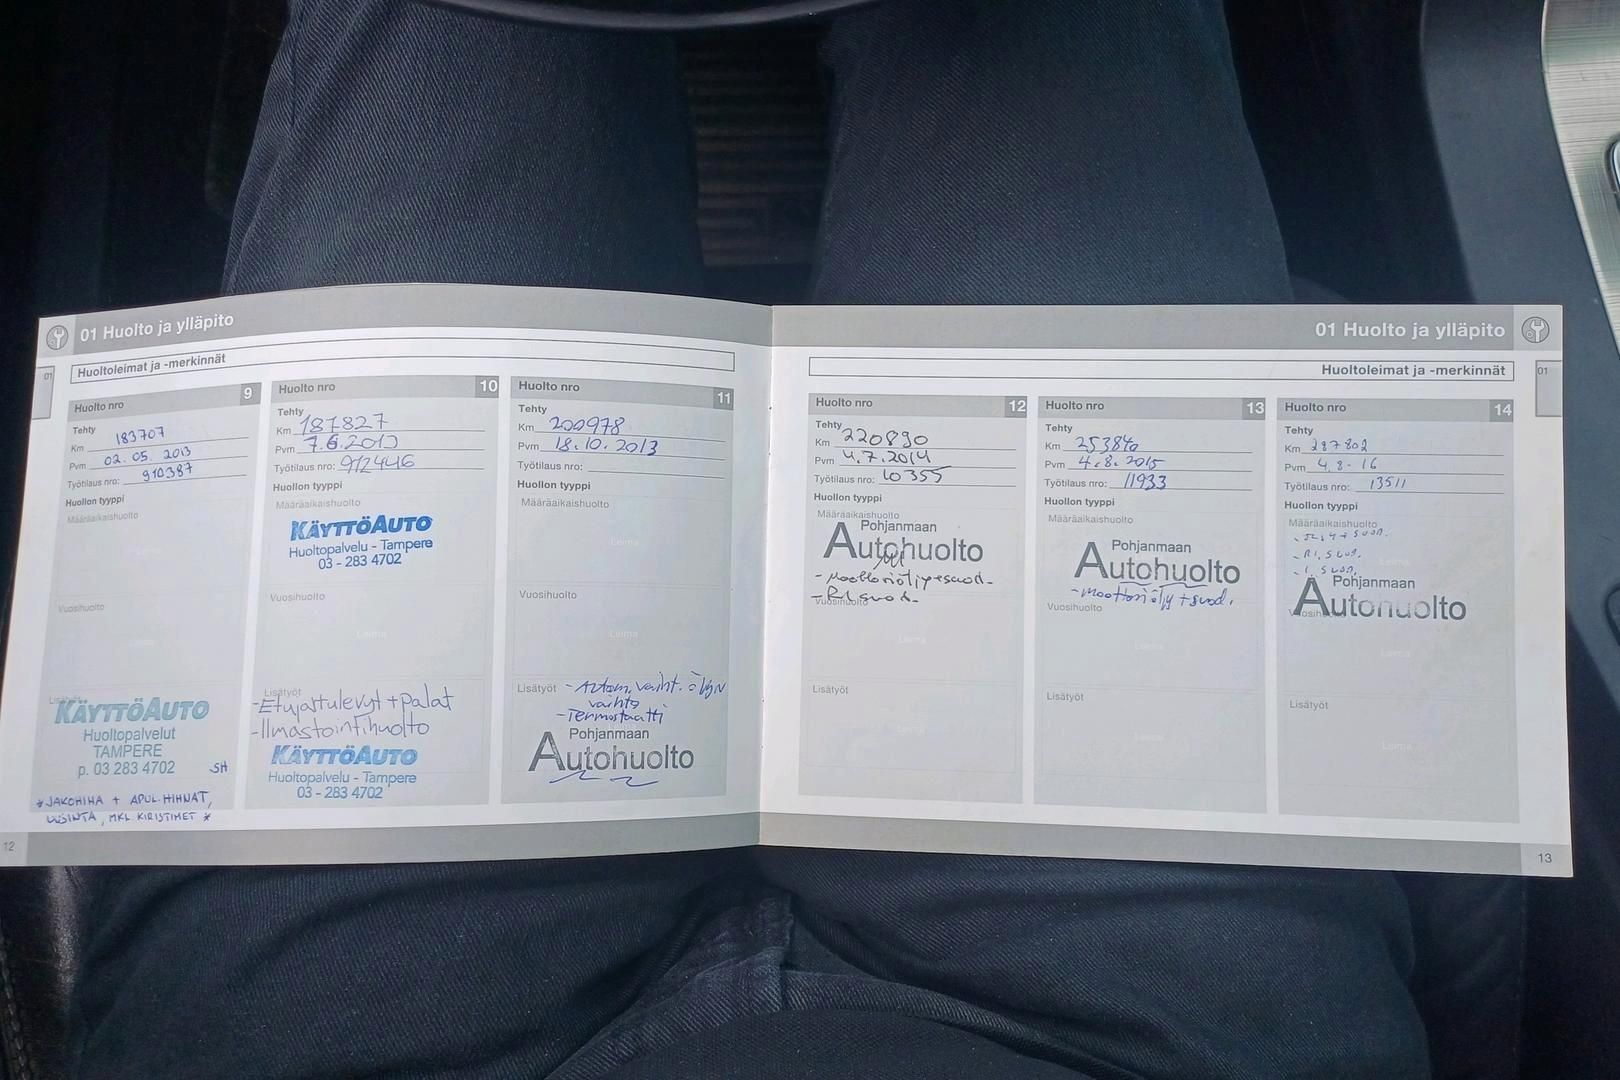 01 Huolto ja ylläpito
01
Huoltoleimat ja -merkinnät
Huolto nro 9
Tehty
Km 183707
Pvm 02.05.2013
Työtilaus nro: 910387
Huollon tyyppi
Määräaikaishuolto
Vuosihuolto
Lisätyöt
KÄYTTÖAUTO
Huoltopalvelut
TAMPERE
p. 03 283 4702 SH
* JAKOHIHA + APUL.HIHNAT,
UUSINTA, MKL KIRISTIMET *
12
Huolto nro 10
Tehty
Km 187827
Pvm 7.6.2013
Työtilaus nro: 912446
Huollon tyyppi
Määräaikaishuolto
KÄYTTÖAUTO
Huoltopalvelu - Tampere
03 - 283 4702
Vuosihuolto
Leima
Lisätyöt
- Etujarrulevyt + palat
- Ilmastointihuolto
KÄYTTÖAUTO
Huoltopalvelu - Tampere
03 - 283 4702
Huolto nro 11
Tehty
Km 200978
Pvm 18.10.2013
Työtilaus nro:
Huollon tyyppi
Määräaikaishuolto
Leima
Vuosihuolto
Leima
Lisätyöt - Autom.vaiht. öljyn
vaihto
- Termostaatti
Pohjanmaan
Autohuolto
01 Huolto ja ylläpito
01
Huoltoleimat ja -merkinnät
Huolto nro 12
Tehty
Km 220890
Pvm 4.7.2014
Työtilaus nro: 10355
Huollon tyyppi
Määräaikaishuolto
Pohjanmaan
Autohuolto
- Moottoriöljy+suod.
- RI.suod.
Vuosihuolto
Leima
Lisätyöt
Leima
Huolto nro 13
Tehty
Km 253840
Pvm 4.8.2015
Työtilaus nro: 11933
Huollon tyyppi
Määräaikaishuolto
Pohjanmaan
Autohuolto
- Moottoriöljy + suod.
Vuosihuolto
Leima
Lisätyöt
Leima
Huolto nro 14
Tehty
Km 287802
Pvm 4.8-16
Työtilaus nro: 13511
Huollon tyyppi
Määräaikaishuolto
- RI.suod.
- I.suod.
Pohjanmaan
Autohuolto
Vuosihuolto
Leima
Lisätyöt
Leima
13